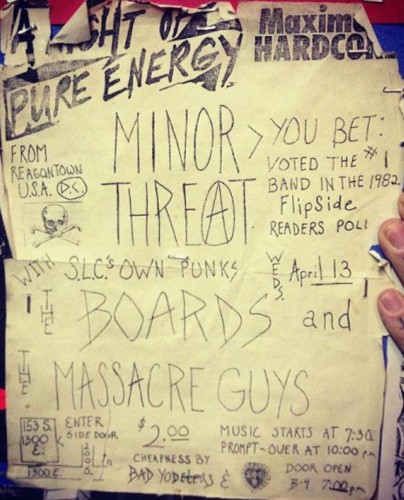 A NIGHT OF
PURE ENERGY
Maximum
HARDCORE
FROM
REAGONTOWN
U.S.A. D.C.
MINOR
THREAT
> YOU BET:
VOTED THE #1
BAND IN THE 1982
FlipSide
READERS POLL
WITH S.L.C.'S OWN PUNKS
WEDS. April 13
THE BOARDS and
THE MASSACRE GUYS
153 S.
1300
E.
1300 E.
ENTER
SIDE DOOR
$2.00
CHEAPNESS BY
BAD YODELERS &
MUSIC STARTS AT 7:30
PROMPT-OVER AT 10:00 pm
DOOR OPEN
B-4 7:00pm